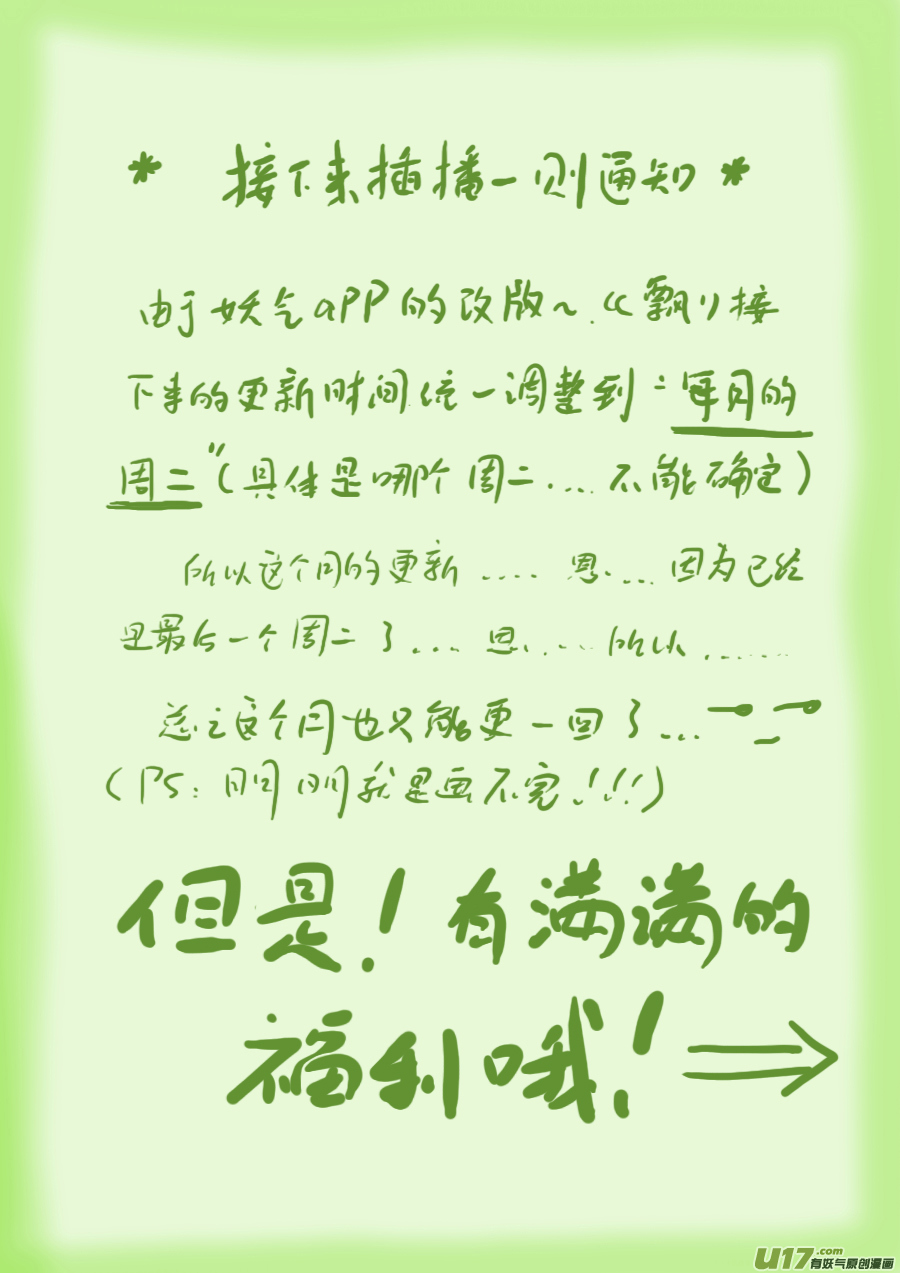 * 接下来插播一则通知 *
由于妖气app的改版~.《飘》接
下来的更新时间统一调整到“每月的
周二”(具体是哪个周二....不能确定)
所以这个月的更新.....恩....因为已经
是最后一个周二了....恩......所以.......
总之这个月也只能更一回了...
(PS:明明就是画不完!!!)
但是!有满满的
福利哦!⇒
U17.com
有妖气原创漫画